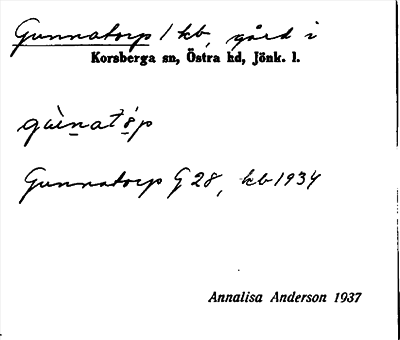 Gunnatorp 1 kb, gård i
Korsberga sn, Östra hd, Jönk. l.
gùnatǫ́p
Gunnatorp G 28, kb 1934
Annalisa Anderson 1937